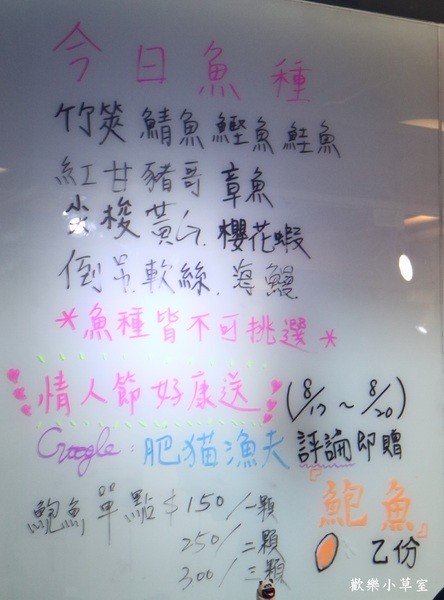 今日魚種
竹筴 鯖魚 鰹魚 鮭魚
紅甘 豬哥 章魚
金梭 黃，櫻花蝦
倒吊，軟絲，海鰻
*魚種皆不可挑選*
情人節好康送 (8/17～8/20)
Google：肥猫漁夫 評論即贈
鮑魚單點$150/一顆 『鮑魚』
250/二顆 乙份
300/三顆
歡樂小草室